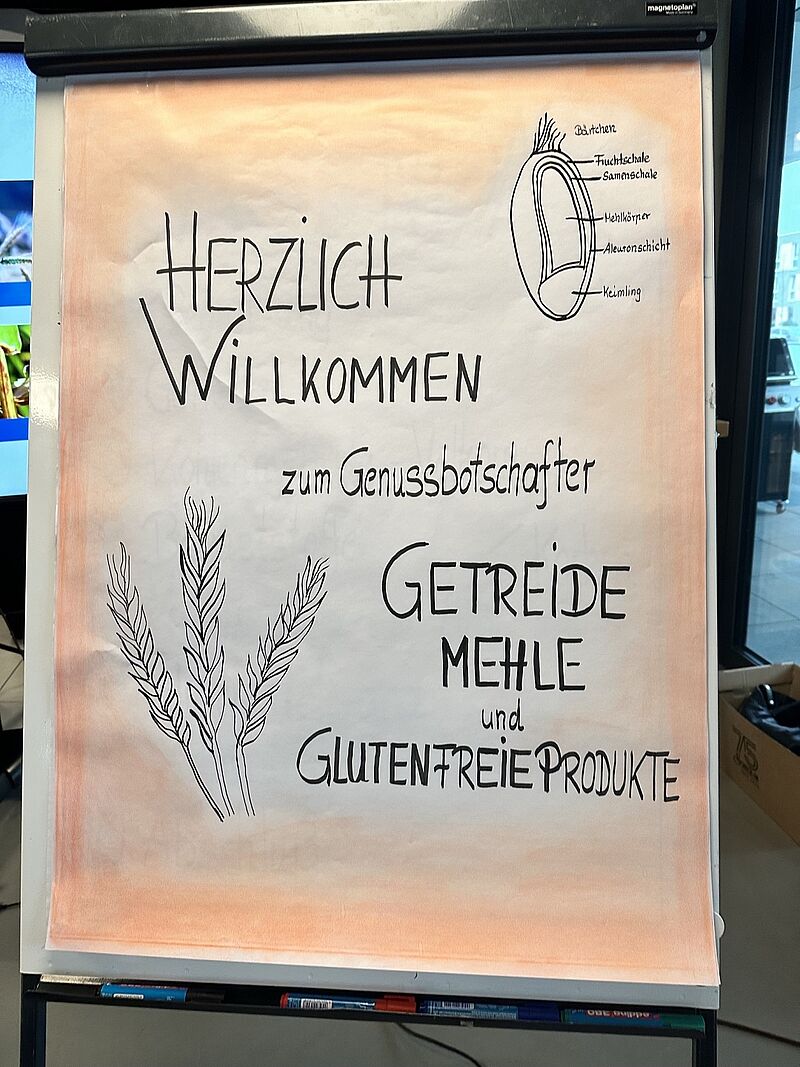 magnetoplan
Bärtchen
Fruchtschale
Samenschale
Mehlkörper
Aleuronschicht
Keimling
HERZLICH
WILLKOMMEN
zum Genussbotschafter
GETREIDE
MEHLE
und
GLUTENFREIE PRODUKTE
75